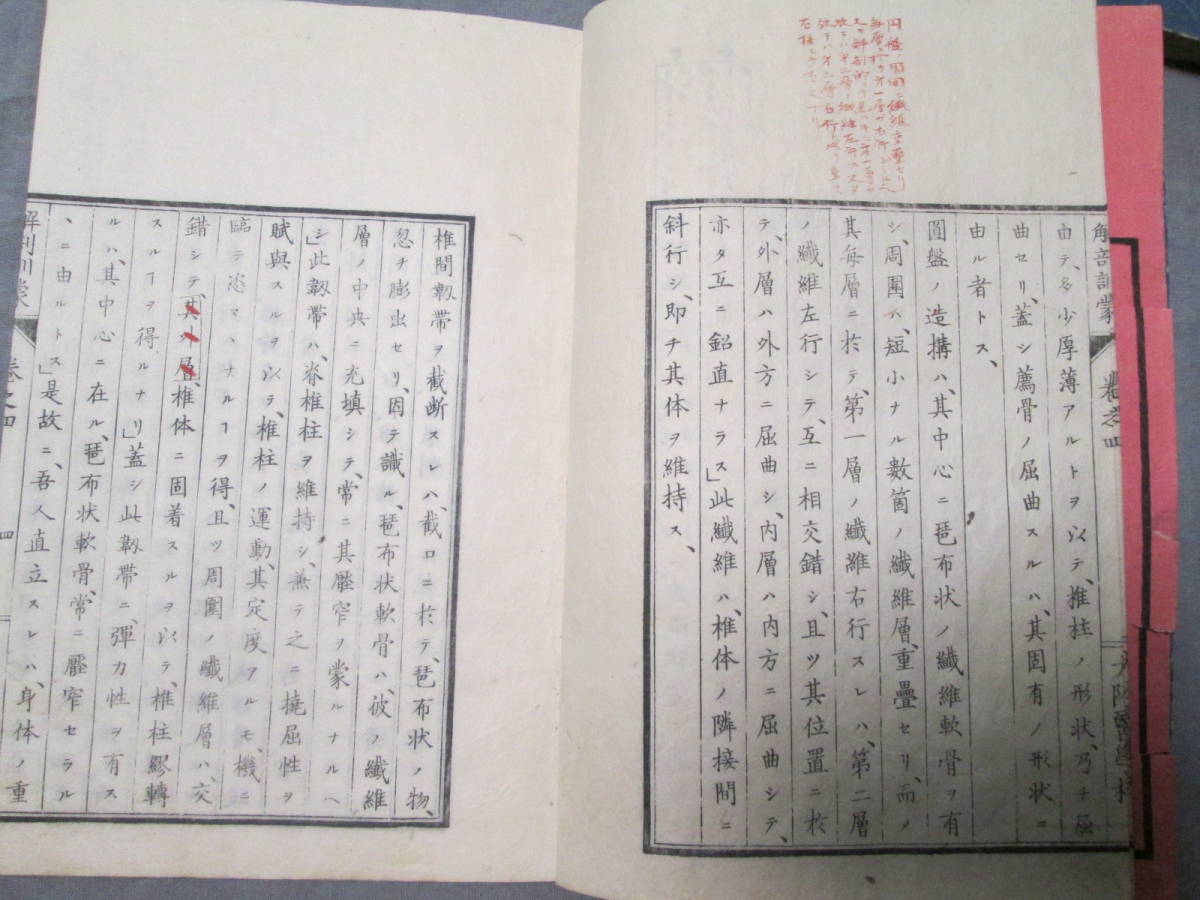 解剖訓蒙
卷之四
由テ、多少厚薄アルトヲ以テ、椎柱ノ形状、乃チ屈
曲セリ、蓋シ薦骨ノ屈曲スルハ、其固有ノ形状ニ
由ル者トス、
圓盤ノ造構ハ、其中心ニ琶布状ノ纖維軟骨ヲ有
シ、周圍ハ、短小ナル數箇ノ纖維層、重疊セリ、而ノ
其毎層ニ於テ、第一層ノ纖維右行スレハ、第二層
ノ纖維左行シテ、互ニ相交錯シ、且ツ其位置ニ於
テ、外層ハ外方ニ屈曲シ、内層ハ内方ニ屈曲シテ、
亦タ互ニ鉛直ナラス」此纖維ハ、椎体ノ隣接間ニ
斜行シ、即チ其体ヲ維持ス、
椎間韌帶ヲ截断スレハ、截口ニ於テ、琶布状ノ物、
忽チ膨出セリ、因テ識ル、琶布状軟骨ハ、彼ノ纖維
層ノ中央ニ充填シテ、常ニ其壓窄ヲ蒙ルナルヘ
シ」此韌帶ハ、脊椎柱ヲ維持シ、兼テ之ニ撓屈性ヲ
賦與スルヲ以テ、椎柱ノ運動、其定度アルモ、機ニ
臨テ恣マヽナルヿヲ得、且ツ周圍ノ纖維層ハ、交
錯シテ、其外層、椎体ニ固着スルヲ以テ、椎柱繆轉
スルヿヲ得ルナリ」蓋シ此韌帶ニ、彈力性ヲ有ス
ルハ、其中心ニ在ル、琶布状軟骨、常ニ壓窄セラル
ヽニ由ルトス」是故ニ、吾人直立スレハ、身体ノ重
卷之四
四